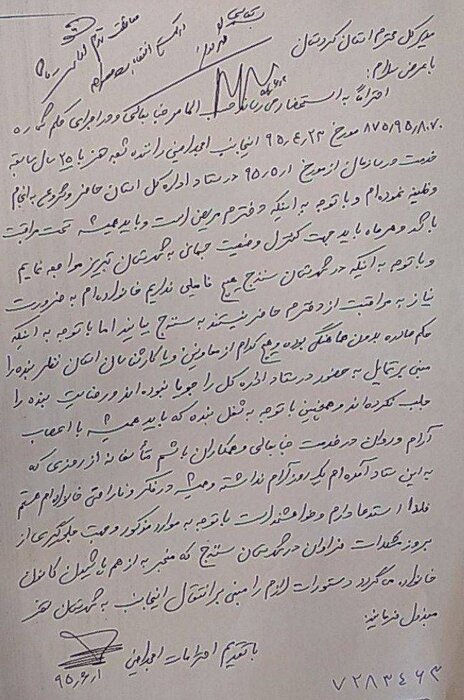 مدیر کل محترم استان کردستان
با عرض سلام:
احتراماً به استحضار می رساند حسب الامر جنابعالی و در اجرای حکم شماره
۸۷۵/۹۵/۸۰۷۰ مورخ ۹۵,۴,۲۳ اینجانب امجد امینی راننده شعبه سقز با ۲۵ سال سابقه
خدمت در سازمان از مورخ ۹۵,۵,۱ در ستاد اداره کل استان حاضر و شروع به انجام
وظیفه نموده ام و با توجه به اینکه دخترم مریض است و باید همیشه تحت مراقبت
باشد و هر ماه باید جهت کنترل وضعیت جسمانی به شهرستان تبریز مراجعه نمایم
و با توجه به اینکه در شهرستان سنندج هیچ فامیلی نداریم خانواده ام به ضرورت
نیاز به مراقبت از دخترم حاضر نیستند به سنندج بیایند اما با توجه به اینکه
حکم صادره بدون هماهنگی بوده و هیچ کدام از معاونین و یا کارشناسان استان نظر بنده را
مبنی بر تمایل به حضور در ستاد اداره کل را جویا نبوده اند و رضایت بنده را
جلب نکرده اند و همچنین با توجه به شغل بنده که باید همیشه با اعصاب
آرام و روان در خدمت جنابعالی و همکاران باشم متأسفانه از روزی که
به این ستاد آمده ام یک روز آرام نداشته و همیشه در فکر و ناراحتی خانواده ام هستم
لذا استدعا دارم و خواهشمند است با توجه به موارد مذکور و جهت جلوگیری از
بروز مشکلات فراوان در شهرستان سنندج که منجر به از هم پاشیدن کانون
خانواده می گردد دستورات لازم را مبنی بر انتقال اینجانب به شهرستان سقز
مبذول فرمائید.
با تقدیم احترامات امجد امینی
۹۵,۶,۱
۷۲۸۳۴۶۳